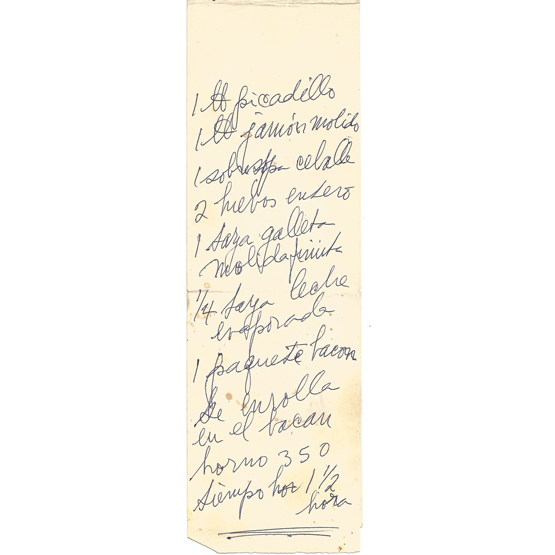 1 lb picadillo
1 lb jamón molido
1 sobre spa cebolle
2 huebos entero
1 taza galleta
molida finita
1/4 taza leche
evaporada
1 paquete bacon
Se enrolla
en el bacan
horno 350
tiempo hor 1 1/2
hora